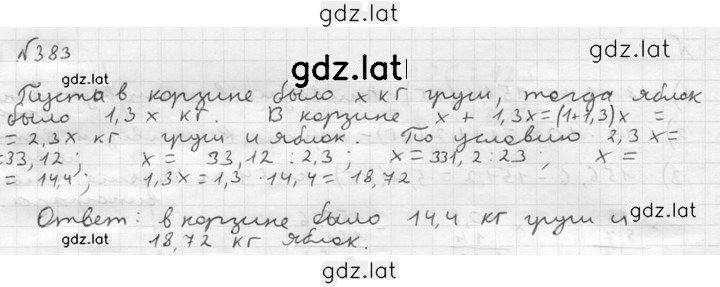 gdz.lat
№383
gdz.lat
gdz.lat
gdz.lat
Пусть в корзине было x кг груш, тогда яблок
было 1,3 x кг. В корзине x + 1,3x=(1+1,3)x =
= 2,3x кг груш и яблок. По условию 2,3 x=
=33,12; x = 33,12 : 2,3; x = 331,2 : 23; x =
= 14,4; 1,3x = 1,3 · 14,4 = 18,72
gdz.lat
Ответ: в корзине было 14,4 кг груш и
gdz.lat
18,72 кг яблок.
gdz.lat
gdz.lat